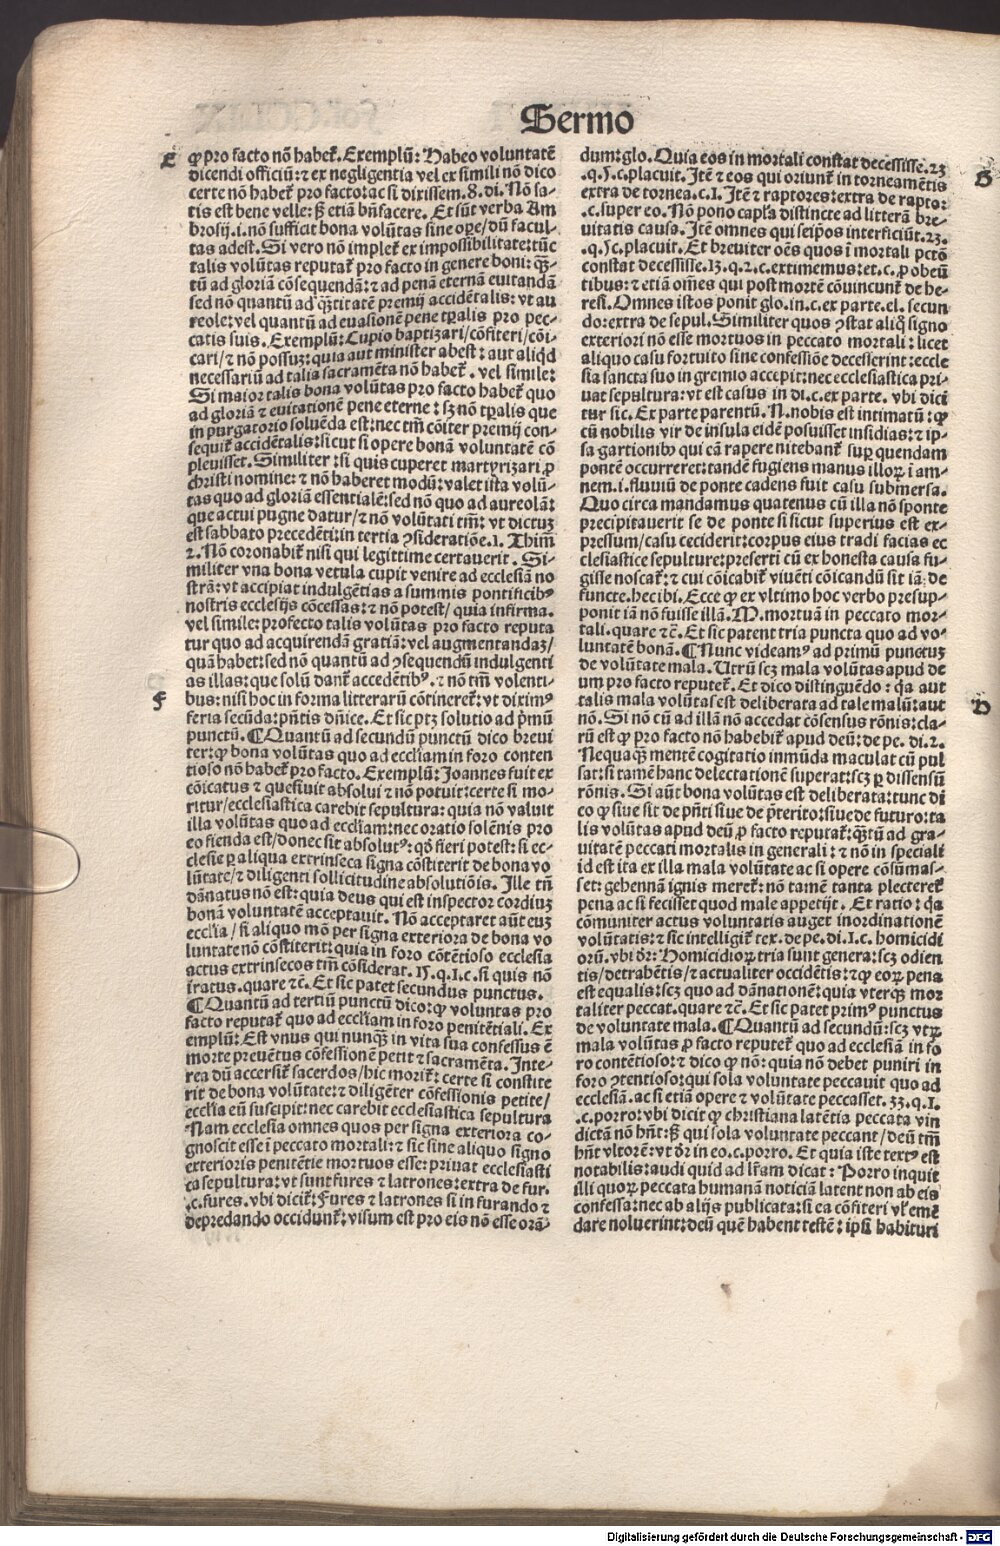 Sermo
E
ꝙ pro facto nō habet̄. Exemplū: Habeo voluntatē
dicendi officiū: ⁊ ex negligentia vel ex simili nō dico
certe nōn habet̄ pro facto: ac si dixissem. 8. di. Nō sa-
tis est bene velle: sꝫ etiā bn̄facere. Et sūt verba Am
brosij. i. nō sufficit bona volūtas sine oꝑe / dū facul-
tas adest. Si vero nō implet̄ ex impossibilitate: tūc
talis volūtas reputat̄ pro facto in genere boni: qꝫ-
tū ad gloriā cōsequendā: ⁊ ad penā eternā euitandā
sed nō quantū ad q̄titatē premij accidētalis: vt au
reole: vel quantū ad euasionē pene tꝑalis pro pec-
catis suis. Exemplū: Cupio baptizari / cōfiteri / cōi-
cari / ⁊ nō possuꝫ: quia aut minister abest: aut aliqd
necessariū ad talia sacramēta nō habet̄. vel simile:
Si maior talis bona volūtas pro facto habet̄ quo
ad gloriā ⁊ euitationē pene eterne: sꝫ nō tꝑalis que
in purgatorio soluēda est: nec tm̄ cōiter premij con-
sequit̄ accidētalis: sicut si opere bonā voluntatē cō
pleuisset. Similiter: si quis cuperet martyrizari ꝓ
christi nomine: ⁊ nō haberet modū: valet ista volū-
tas quo ad gloriā essentialē: sed nō quo ad aureolā:
que actui pugne datur / ⁊ nō volūtati tm̄: vt dictuꝫ
est sabbato precedēti: in tertia ꝯsideratiōe. 1. Thim̄
2. Nō coronabit̄ nisi qui legittime certauerit. Si-
militer vna bona vetula cupit venire ad ecclesiā no
strā: vt accipiat indulgētias a summis pontificibꝰ
nostris ecclesijs cōcessas: ⁊ nō potest / quia infirma.
vel simile: profecto talis volūtas pro facto reputa
tur quo ad acquirendā gratiā: vel augmentandaꝫ /
quā habet: sed nō quantū ad ꝯsequendū indulgenti
as illas: que solū dant̄ accedētibꝰ. ⁊ nō tm̄ volenti-
F
bus: nisi hoc in forma litterarū cōtineret̄: vt diximꝰ
feria secūda: pn̄tis dn̄ice. Et sic ptꝫ solutio ad p̄mū
punctū. ¶ Quantū ad secundū punctū dico breui
ter: ꝙ bona volūtas quo ad eccl̄iam in foro conten
tioso nō habet̄ pro facto. Exemplū: Joannes fuit ex
cōicatus ⁊ quesiuit absolui ⁊ nō potuit: certe si mo-
ritur / ecclesiastica carebit sepultura: quia nō valuit
illa volūtas quo ad eccl̄iam: nec oratio solēnis pro
eo fienda est / donec sit absolutꝰ: qd̄ fieri potest: si ec-
clesie ꝑ aliqua extrinseca signa cōstiterit de bona vo
lūtate / ⁊ diligenti sollicitudine absolutiōis. Ille tn̄
dānatus nō est: quia deus qui est inspector cordiuꝫ
bonā voluntatē acceptauit. Nō acceptaret aūt euꝫ
eccl̄ia / si aliquo mō per signa exteriora de bona vo
luntate nō cōstiterit: quia in foro cōtētioso ecclesia
actus extrinsecos tm̄ cōsiderat. 15. q. 1. c. si quis nō
iratus. quare ⁊c̄. Et sic patet secundus punctus.
¶ Quantū ad tertiū punctū dico: ꝙ voluntas pro
facto reputat̄ quo ad eccl̄iam in foro penitētiali. Ex
emplū: Est vnus qui nunqꝫ in vita sua confessus ē
morte preuētus cōfessionē petit ⁊ sacramēta. Inte-
rea dū accersit̄ sacerdos / hic morit̄: certe si constite
rit de bona volūtate: ⁊ diligēter cōfessionis petite /
eccl̄ia eū suscipit: nec carebit ecclesiastica sepultura
Nam ecclesia omnes quos per signa exteriora co-
gnoscit esse ī peccato mortali: ⁊ sic sine aliquo signo
exterioris penitētie mortuos esse: priuat ecclesiasti
ca sepultura: vt sunt fures ⁊ latrones: extra de fur.
.c. fures. vbi dicit̄: Fures ⁊ latrones si in furando ⁊
depredando occidunt̄: visum est pro eis nō esse orā-
dum: glo. Quia eos in mortali constat decessisse. 23
.q. 5. c. placuit. Itē ⁊ eos qui oriunt̄ in torneamētis
extra de tornea. c. 1. Itē ⁊ raptores: extra de raptor.
.c. super eo. Nō pono capl̄a distincte ad litterā bre-
uitatis causa. Itē omnes qui seip̄os interficiūt. 23.
.q. 5. c. placuit. Et breuiter oēs quos ī mortali pctō
constat decessisse. 13. q. 2. c. extimemus: et. c. ꝓ obeū
tibus: ⁊ etiā om̄es qui post mortē cōuincunt̄ de he-
resi. Omnes istos ponit glo. in. c. ex parte. el. secun
do: extra de sepul. Similiter quos ꝯstat aliq̄ signo
exteriori nō esse mortuos in peccato mortali: licet
aliquo casu fortuito sine confessiōe decesserint: eccle
sia sancta suo in gremio accepit: nec ecclesiastica pri-
uat sepultura: vt est casus in di. c. ex parte. vbi dici
tur sic. Ex parte parentū. N. nobis est intimatū: ꝙ
cū nobilis vir de insula eidē posuisset insidias: ⁊ ip-
sa gartionibꝰ qui eā rapere nitebant̄ suꝑ quendam
pontē occurreret: tandē fugiens manus illoꝝ ī am-
nem. i. fluuiū de ponte cadens fuit casu submersa.
Quo circa mandamus quatenus cū illa nō sponte
precipitauerit se de ponte si sicut superius est ex-
pressum / casu ceciderit: corpus eius tradi facias ec
clesiastice sepulture: preserti cū ex honesta causa fu-
gisse noscat̄: ⁊ cui cōicabit̄ viuēti cōicandū sit iā: de
functe. hec ibi. Ecce ꝙ ex vltimo hoc verbo presup-
ponit iā nō fuisse illā. M. mortuā in peccato mor-
tali. quare ⁊c̄. Et sic patent tria puncta quo ad vo-
luntatē bonā. ¶ Nunc videamꝰ ad primū punctuꝫ
de volūtate mala. Utrū scꝫ mala volūtas apud de-
um pro facto reputet̄. Et dico distinguēdo: qa aut
D
talis mala volūtas est deliberata ad tale malū: aut
nō. Si nō cū ad illā nō accedat cōsensus rōnis: cla-
rū est ꝙ pro facto nō habebit̄ apud deū: de pe. di. 2.
Nequaqꝫ mentē cogitatio inmūda maculat cū pul
sat: si tamē hanc delectationē superat: scꝫ ꝑ dissensū
rōnis. Si aūt bona volūtas est deliberata: tunc di
co ꝙ siue sit de pn̄ti siue de p̄terito: siue de futuro: ta
lis volūtas apud deū ꝓ facto reputat̄: qꝫtū ad gra-
uitatē peccati mortalis in generali: ⁊ nō in speciali
id est ita ex illa mala volūtate ac si opere cōsūmas-
set: gehennā ignis meret̄: nō tamē tanta plecteret̄
pena ac si fecisset quod male appetijt. Et ratio: qa
cōmuniter actus voluntatis auget inordinationē
volūtatis: ⁊ sic intelligit̄ tex. de pe. di. 1. c. homicidi
orū. vbi dr̄: Homicidioꝝ tria sunt genera: scꝫ odien
tis / detrahētis / ⁊ actualiter occidētis: ⁊ ꝙ eoꝝ pena
est equalis: scꝫ quo ad dānationē: quia vterqꝫ mor
taliter peccat. quare ⁊c̄. Et sic patet primꝰ punctus
de voluntate mala. ¶ Quantū ad secundū: scꝫ vtꝝ
mala volūtas ꝓ facto reputet̄ quo ad ecclesiā in fo
ro contētioso: ⁊ dico ꝙ nō: quia nō debet puniri in
foro ꝯtentioso: qui sola voluntate peccauit quo ad
ecclesiā. ac si etiā opere ⁊ volūtate peccasset. 33. q. 1.
.c. porro: vbi dicit ꝙ christiana latētia peccata vin
dictā nō hn̄t: sꝫ qui sola voluntate peccant / deū tm̄
hn̄t vltorē: vt dr̄ in eo. c. porro. Et quia iste textꝰ est
notabilis: audi quid ad lr̄am dicat: Porro inquit
illi quoꝝ peccata humanā noticiā latent non ab eis
confessa: nec ab alijs publicata: si ea cōfiteri vl̄ emē
dare noluerint: deū quē habent testē: ipsū habituri
Digitalisierung gefördert durch die Deutsche Forschungsgemeinschaft - DFG